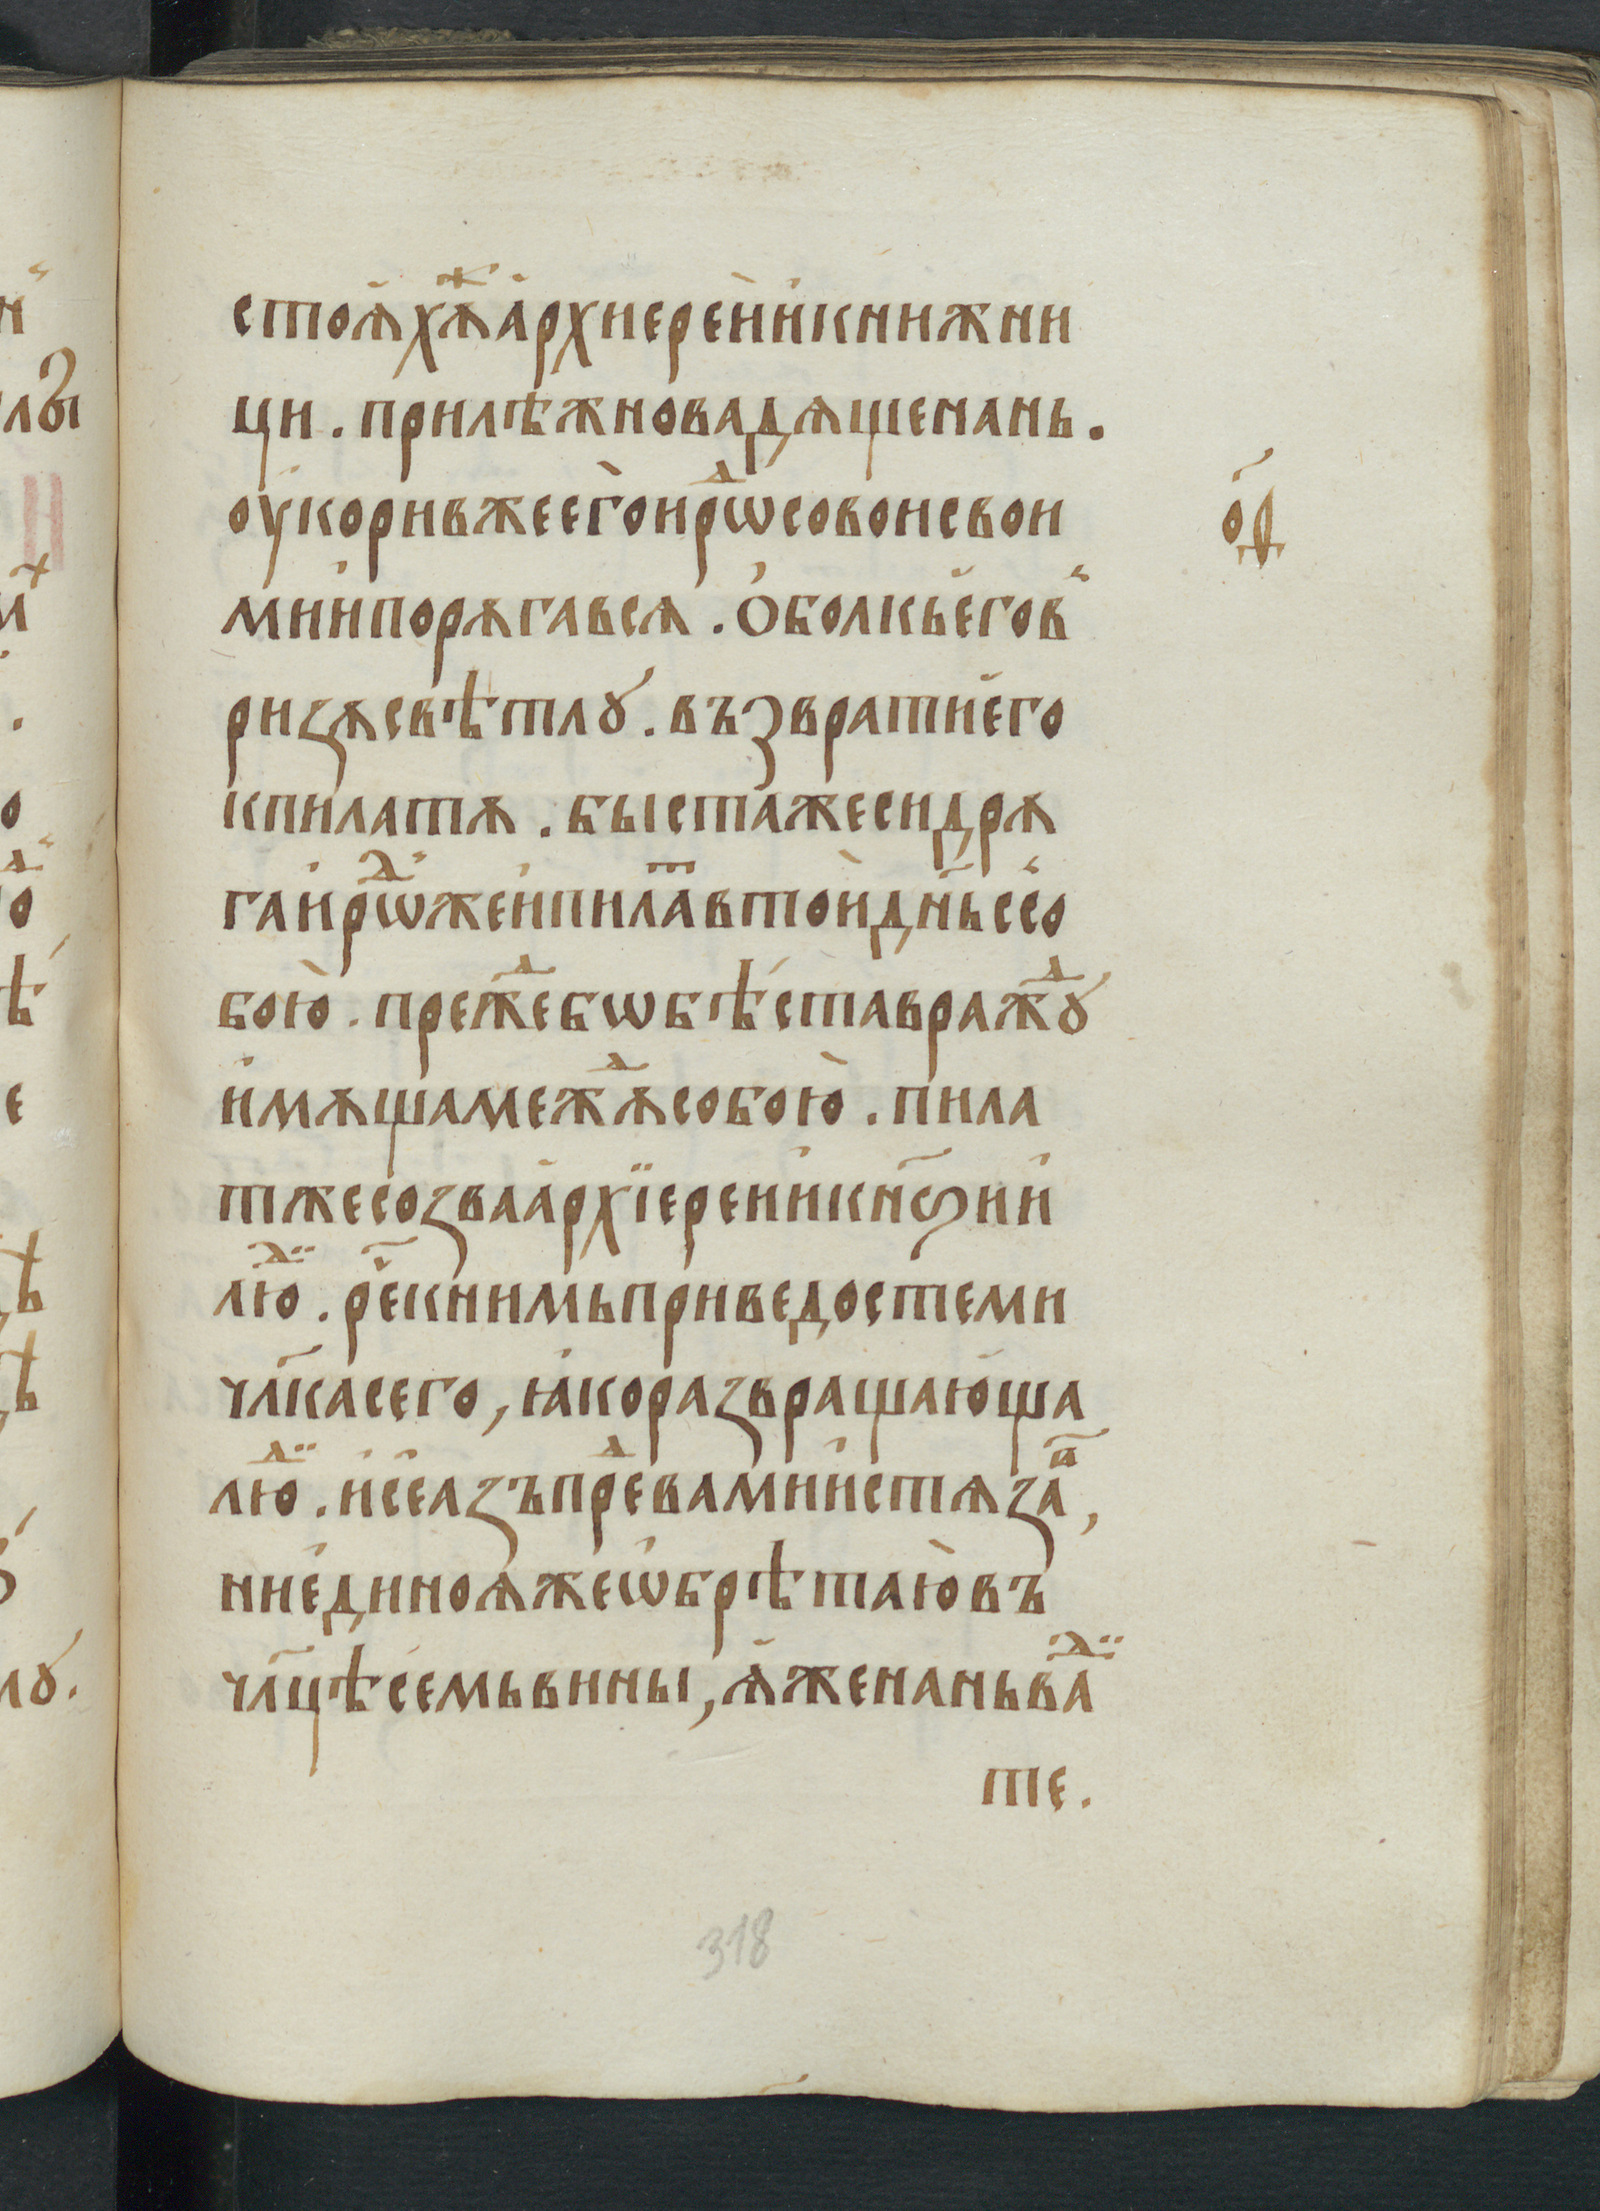 стоѧ҆хѫⷤа҆рхиерѐи҆книжни
ци . прилѣжновадѧщенань .
оу҆коривжеегѡ̀ирѡⷣсовоисвои
мии҆порѫгавсѧ . О҆болкье҆гов
ризѫсвѣтлꙋ . възвратие҆го
кпилатѫ . быста́жесидрѫ
гаи҆рѡⷣжеи҆пилаⷮвтои҆дн҃ьссо
бою̀ . прежⷣебѡбѣставражⷣꙋ
и҆мѫщамежⷣѫсобою̀ . пила
тжесозвааⷬ҆хїереии҆кнѧꙁии҆
лю҆ⷣ . рⷱ҇екнимьприведостеми
чл҃касего , ꙗ҆коразвращающа
лю҆ⷣ . и҆се҆азъпрⷣевамии҆стѧзаⷡ ,
ние҆диноѧжеѡ҆брѣтаю̀въ
чл҃цѣсемьвины , ѧ҆женаньваⷣ
те .
о҃д
318